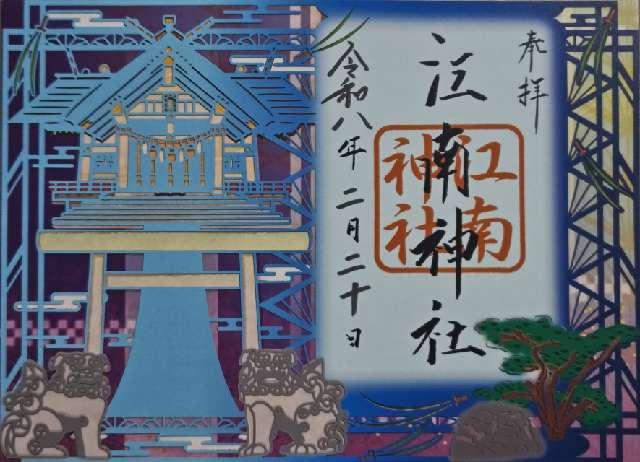 奉拝
江南神社
江南
神社
令和八年二月二十日